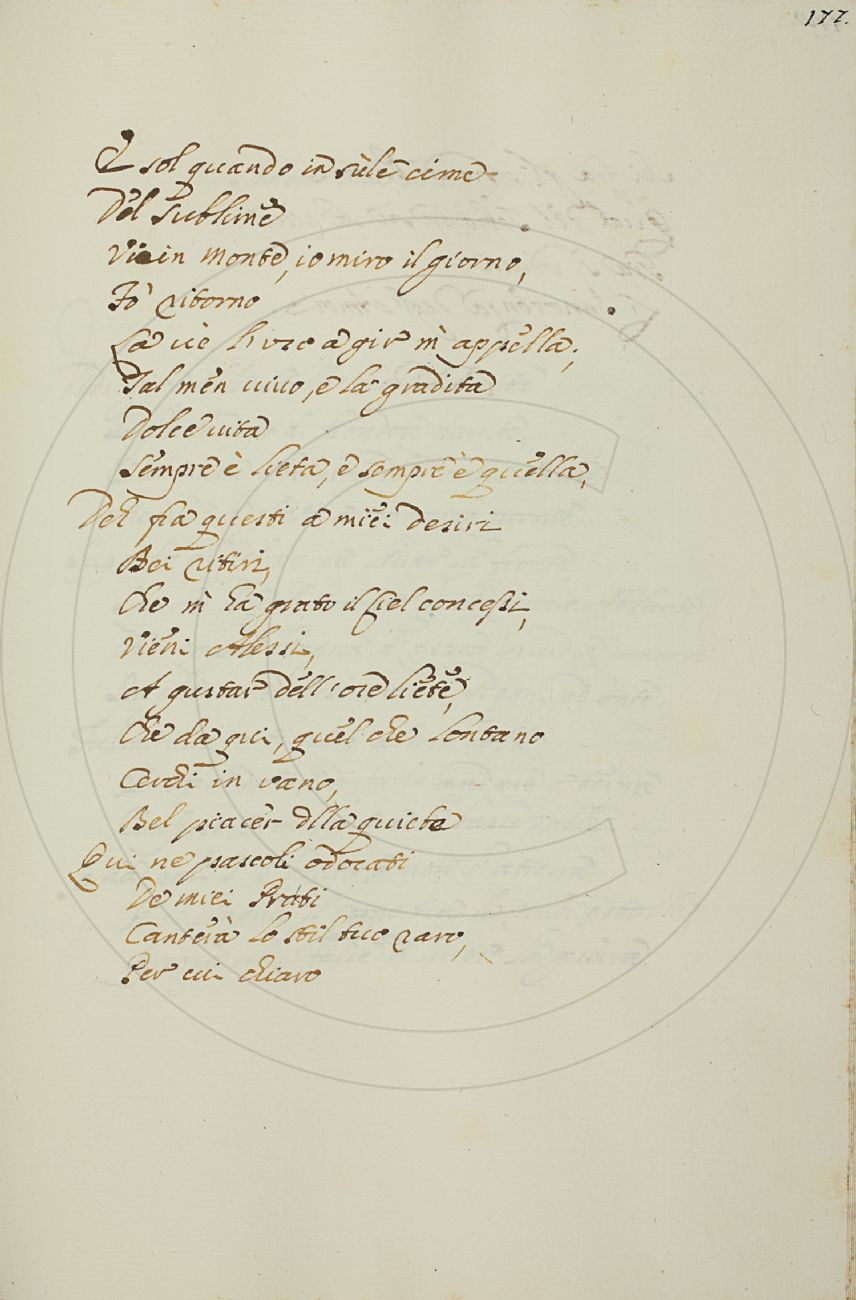 177.
E sol quando in sù le cime
Del sublime
Vicin monte, io miro il giorno,
Fò ritorno
Là v'è l'uso a gir m'appella;
Tal men vivo, e la gradita
Dolce vita
Sempre è lieta, e sempre è quella,
Deh fra questi a miei desiri
Bei ritiri,
Che m'ha grato il Ciel concessi,
Vieni Alessi,
A gustar dell'ore liete,
Che da qui, quel che lontano
Cerchi in vano,
Bel piacer dlla quiete
Qui ne pascoli odorati
De miei Prati
Canterà lo stil tuo raro,
Per cui chiaro